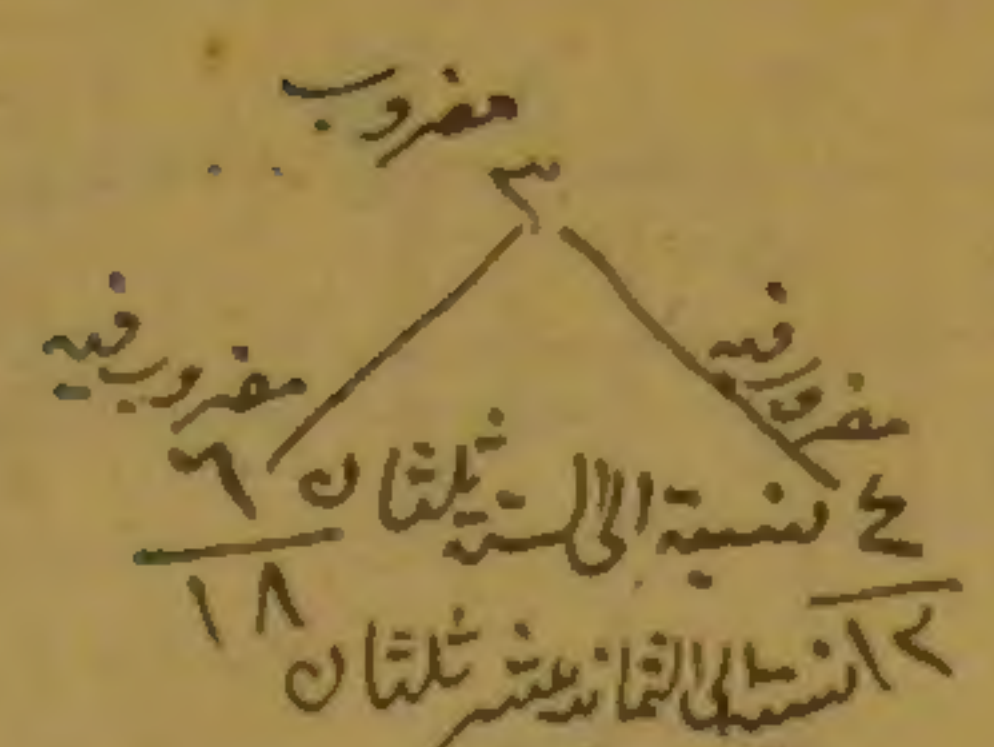 مضروب
٣
مضروب فيه
مضروب فيه
٤ نسبة الى الستة ثلثان ٦
١٢ نسبتها الى الثمانية عشر ثلثان ١٨